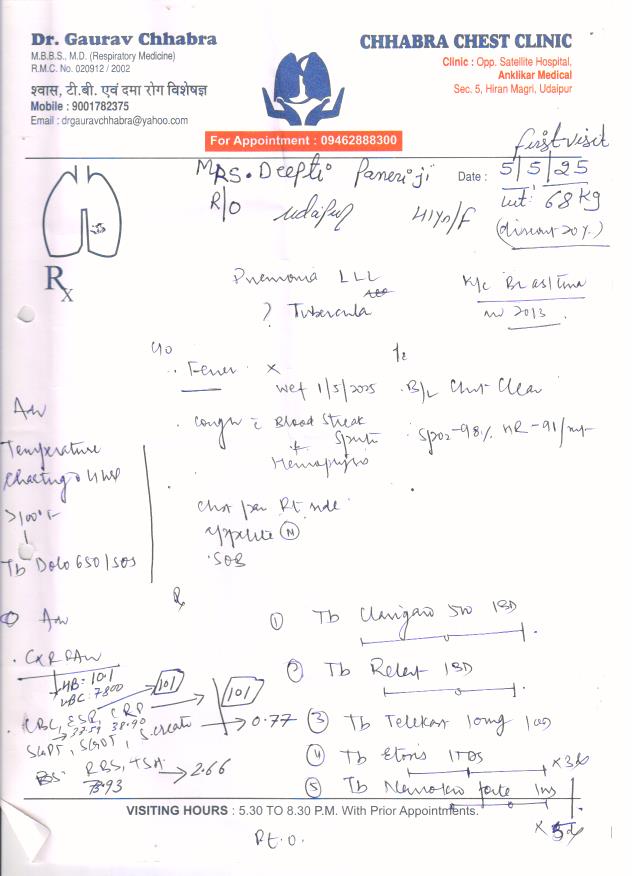 Dr. Gaurav Chhabra
M.B.B.S., M.D. (Respiratory Medicine)
R.M.C. No. 020912 / 2002
श्वास, टी.बी. एवं दमा रोग विशेषज्ञ
Mobile : 9001782375
Email : drgauravchhabra@yahoo.com
CHHABRA CHEST CLINIC
Clinic : Opp. Satellite Hospital,
Anklikar Medical
Sec. 5, Hiran Magri, Udaipur
For Appointment : 09462888300
first visit
MRS. Deepti Paneri ji Date : 5/5/25
R/O Udaipur 41yr/F wt: 68 kg
(discount 20%)
Rx
Pnemonia LLL
? Tubercula
K/c Br asthma
2013
c/o
Fever x
wef 1/5/2025
B/L Chest Clear
cough c Blood Streak
Sputum
Spo2-98% HR-91/min
Hemoptysis
Adv
Temperature
Charting
>100°F
Tb Dolo 650/SOS
Appetite (N)
SOB
Rx
Adv
CXR PAV
HB: 10.1
7800
101
101
CBC, ESR, CRP
38.90
SGPT, SGOT, S.creat 0.77
RBS, TSH 2.66
93
① Tb 500 1BD
② Tb 1BD
③ Tb Telekast 10mg 1OD
④ Tb 1TDS
⑤ Tb forte
VISITING HOURS : 5.30 TO 8.30 P.M. With Prior Appointments.